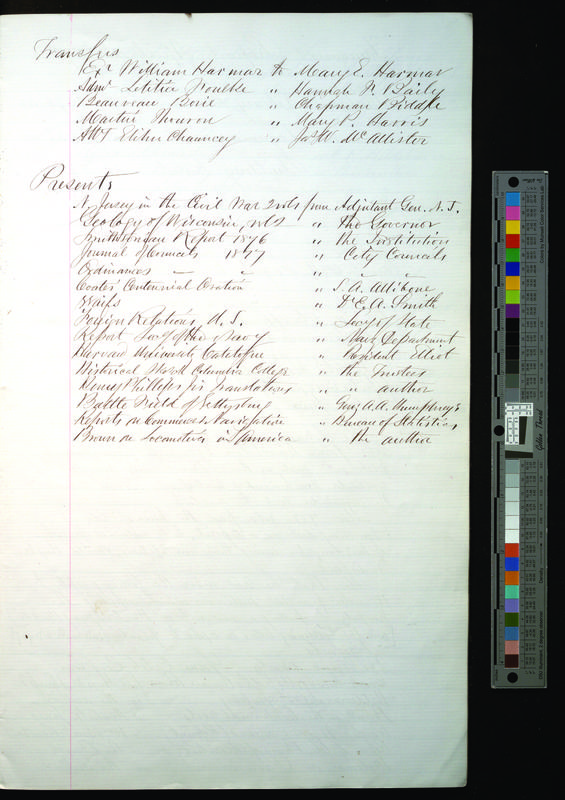 Transfers
Exr William Harmar to Mary E. Harmar
Admr Letitia " Hannah N Baily
Beauveau Borie " Chapman Biddle
Martin Thouron " Mary P. Harris
Elihu Chauncey " Jas W. McAllister
Presents
N. Jersey in the Civil War 2 vols from Adjutant Gen. N.J.
Geology of Wisconsin, vol 2 " the Governor
Smithsonian Report 1876 " the Institution
Journal of Councils 1877 " City Councils
Ordinances — — " " "
Coates' Centennial Oration " S. A. Allibone
Waifs " Dr C. A. Smith
Foreign Relations, U.S. " Secy of State
Report Secy of the Navy " Navy Department
Harvard University Catalogue " President Elliot
Historical Sketch Columbia College " the Trustees
Henry Phillips jr Translations " " author
Battle Field of Gettysburg " Genl A. A. Humphreys
Reports on Commerce & Navigation " Bureau of Statistics
Brown on Locomotives in S America " the author